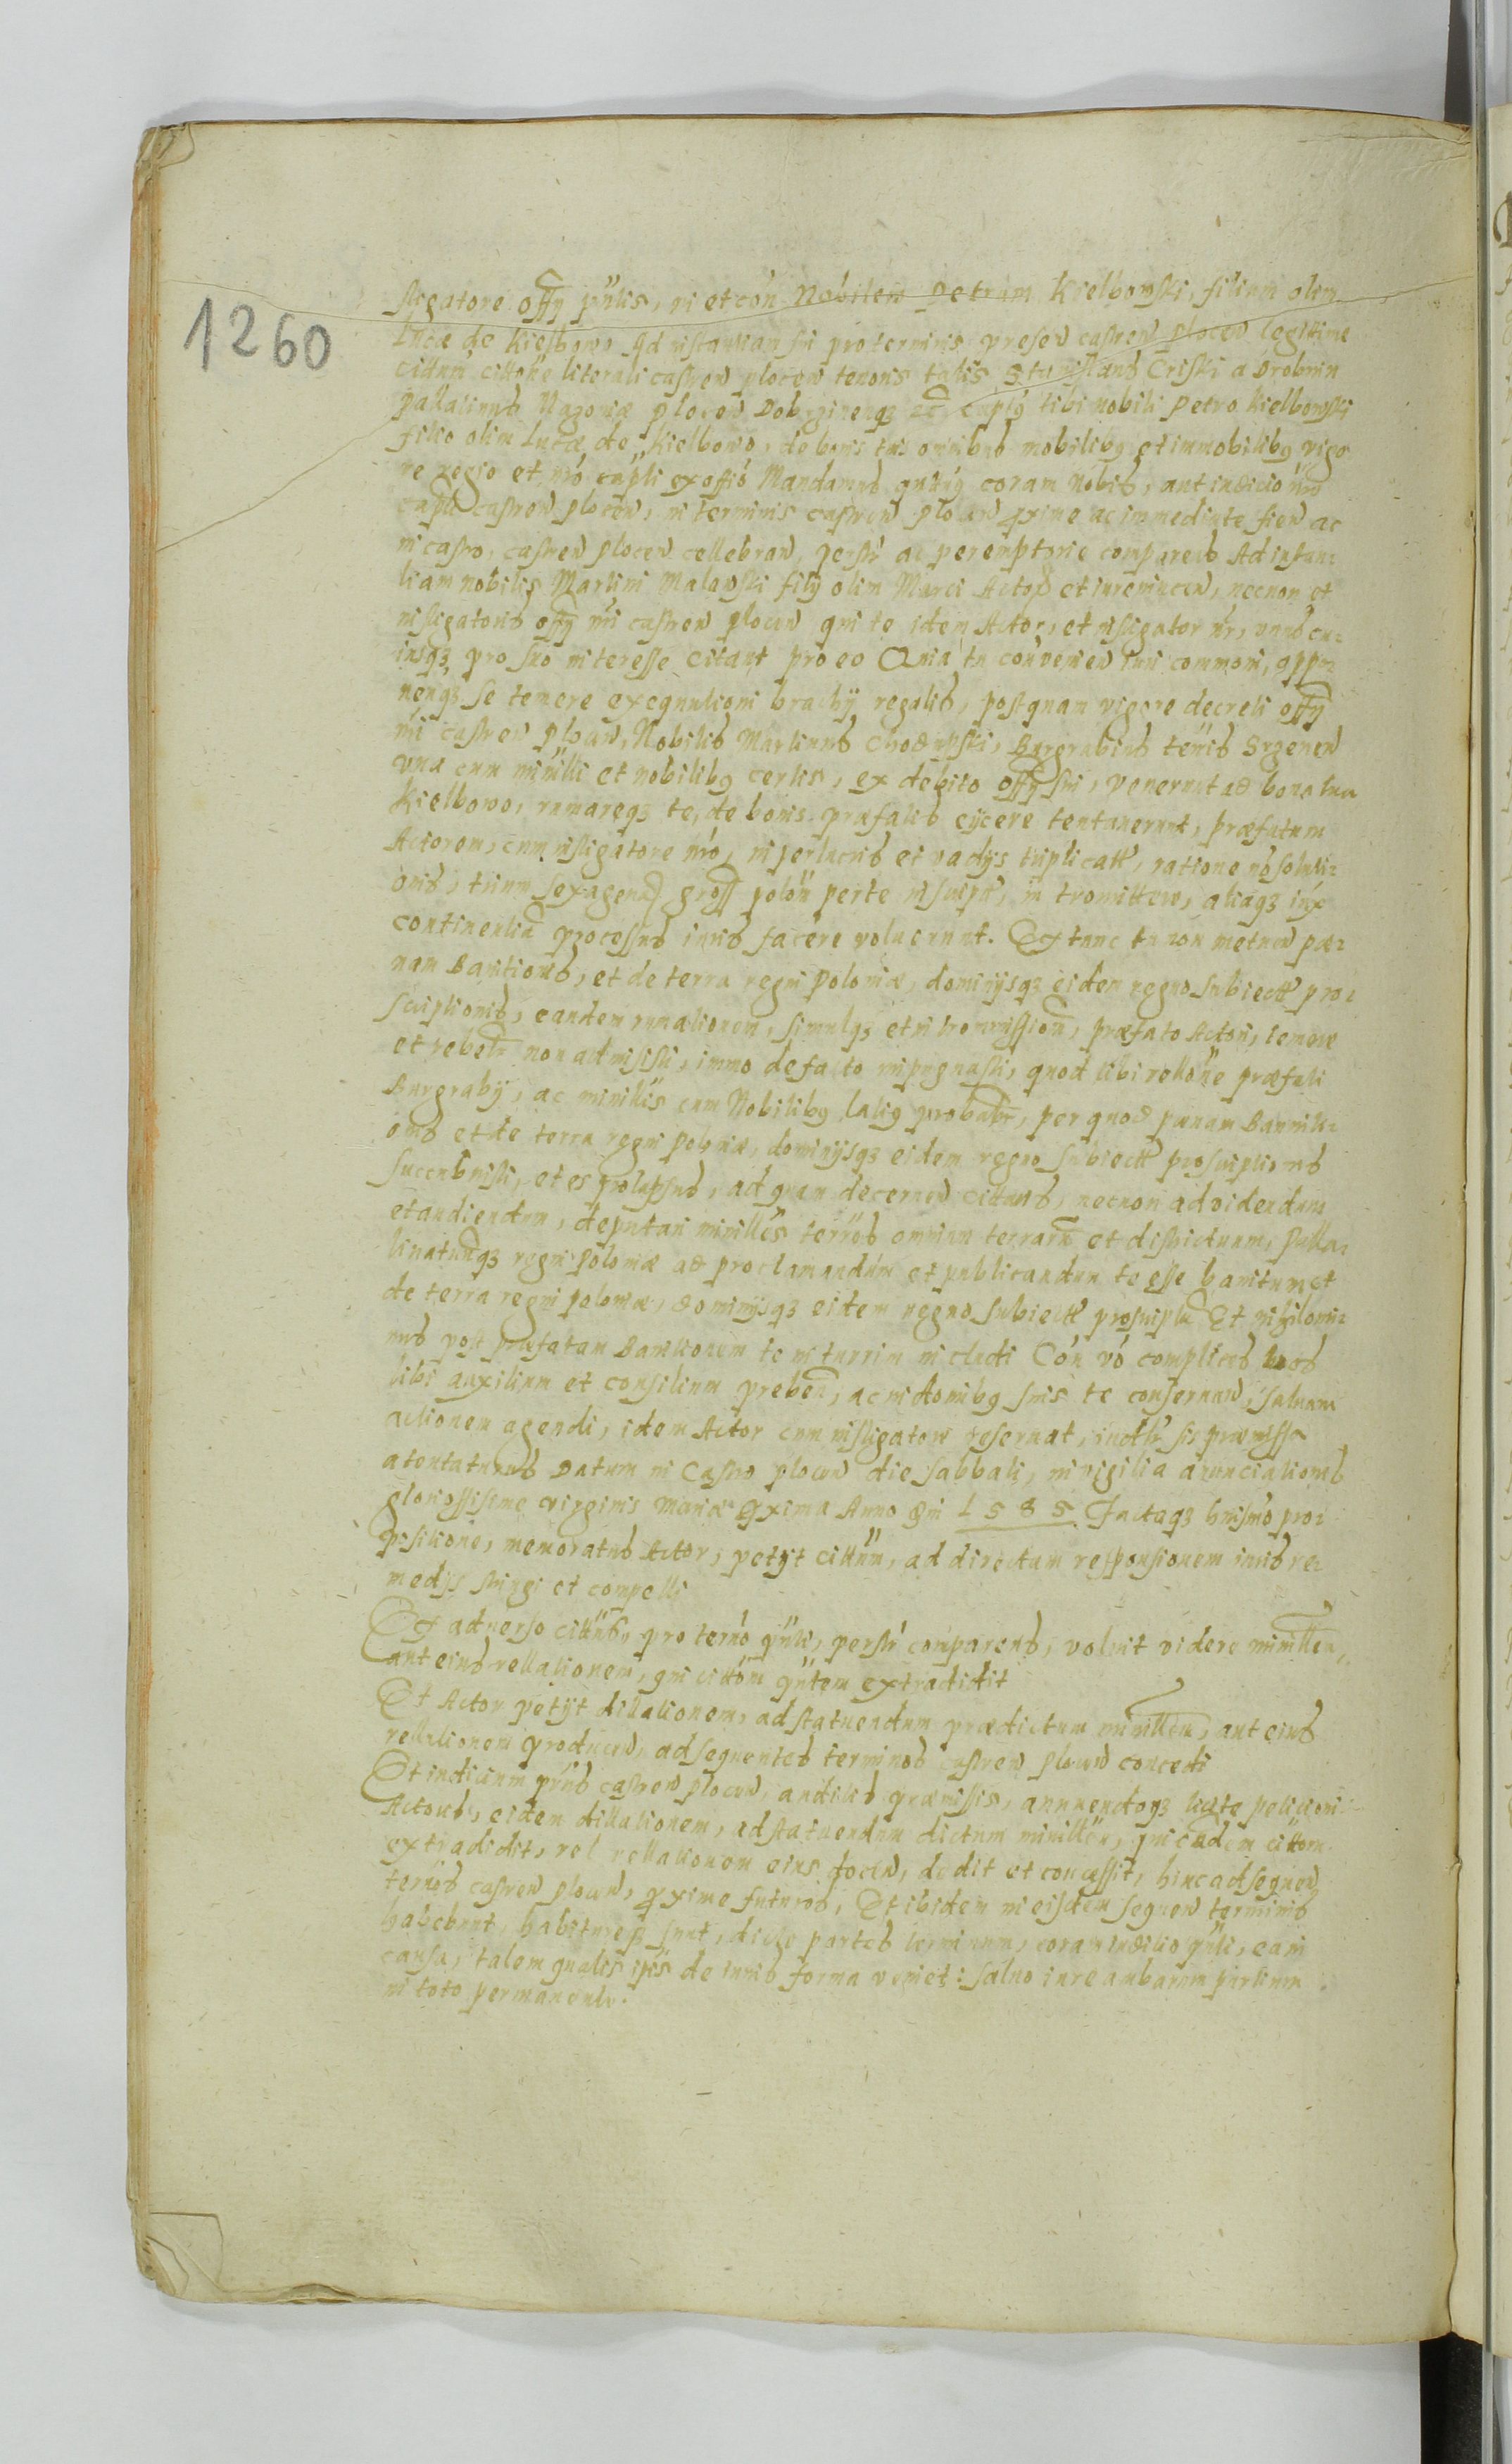 1260
stigatore offy pntis, in et con Nobilem Petrum Kielbowski, filium olim
Lucæ de Kielbowo, Ad instantiam sui pro terminis presen castren plocen legittime
cittatum cittone literali castren plocen tenoris talis Stanislaus Criski a Drobnin
pallatinus Mazoviæ plocen Dobrzinenqz etc captus tibi nobili Petro Kielbowski
filio olim Lucæ de Kielbowo, de bonis tuis omnibus mobilibus et immobilibus vigo
re regio et nro capli ex offio Mandamus quatus coram nobis, aut iudicio nro
capli castren plocen, in terminis castren plocen proxime ac immediate fien ac
in castro, castren plocen cellebran, personaliter ac peremptorie compareas Ad instan=
tiam nobilis Martini Malawski filij olim Marci Actoris et iurevincen, necnon et
instigatoris offy nri castren plocen qui te idem Actor, et instigator nr, unus cu=
iusqz pro suo interesse Citant pro eo Quia tu convenien iuri commoni, oppo=
nenqz se temere exequutioni brachij regalis, postquam vigore decreti offy
nri castren plocen, Nobilis Martinus Chodupski, Burgrabius terris Srzenen
una cum minlli et nobilibus certis, ex debito offy sui, venerunt ad bona tua
Kielbowo, rumareqz te, de bonis præfatis eijcere tentaverunt, præfatum
Actorem, cum instigatore nro, in perlucris et vadijs triplicatt, ratione no soluti=
onis, trium sexagenarum gross polon per te inscript, in tromittere, aliaqz iux
continentiam processus iuris facere voluerunt. Et tunc tu non metuen pæ=
nam Banitionis, et de terra regni Poloniæ, dominijsqz eidem regno subiectt pro=
scriptionis, eandem rumationem, simulqz et intromissionem, præfato Actori, temere
et rebelr non admisisti, immo de facto impugnasti, quod tibi rellone præfati
Burgrabij, ac minlllis cum Nobilibus talis probabr, per quod pænam Banniti=
onis et de terra regni Poloniæ, dominijsqz eidem regno subiectt proscriptionis
succubuisti, et es prolapsus, ad quam decernen cittaris, necnon ad videndum
et audiendum, deputari minilles terros omnium terrarum et districtuum, palla=
tinatunqz regni Poloniæ ad proclamandum et publicandum te esse banitum et
de terra regni Poloniæ, dominijsqz eidem regno subiectt proscriptu Et nihilomi=
nus post præfatam Banitionem te in turrim includi Con vo complices tuos
tibi auxilium et consilium preben, ac in domibus suis te conservan, salvam
actionem agendi, idem Actor cum instigatore reservat, iudr sis præmissa
atentaturus Datum in Castro plocen die sabbati, in vigilia anunciationis
gloriossissime virginis Mariæ proxima Anno dni 1585. Factaqz huismo pro=
positione, memoratus Actor, petijt cittum, ad directam responsionem iuris re=
medijs stringi et compelli
Ex adverso cittus, pro terno pnti, personaliter comparens, voluit videre minillem,
aut eius rellationem, qui cittom pntem extradidit
Et Actor petijt dillationem, ad statuendum prædictum minillem, aut eius
rellationem producen, ad sequentes terminos castren plocen concedi
Et iudicium pns castren plocen, auditis præmissis, annuendoqz iustæ peticioni
Actoris, eidem dillationem, ad statuendum dictum minillem, qui eadem cittom
extradidit, vel rellationem eius docen, dedit et concessit, hinc ad sequen
ternos castren plocen, proxime futuros, Et ibidem in eisdem sequen terminis
habebunt, habitureqz sunt, dicte partes terminum, coram iudicio pnti, eam
causa, talem qualis ipsis de iuris forma veniet: salvo iure ambarum partium
in toto permanente.